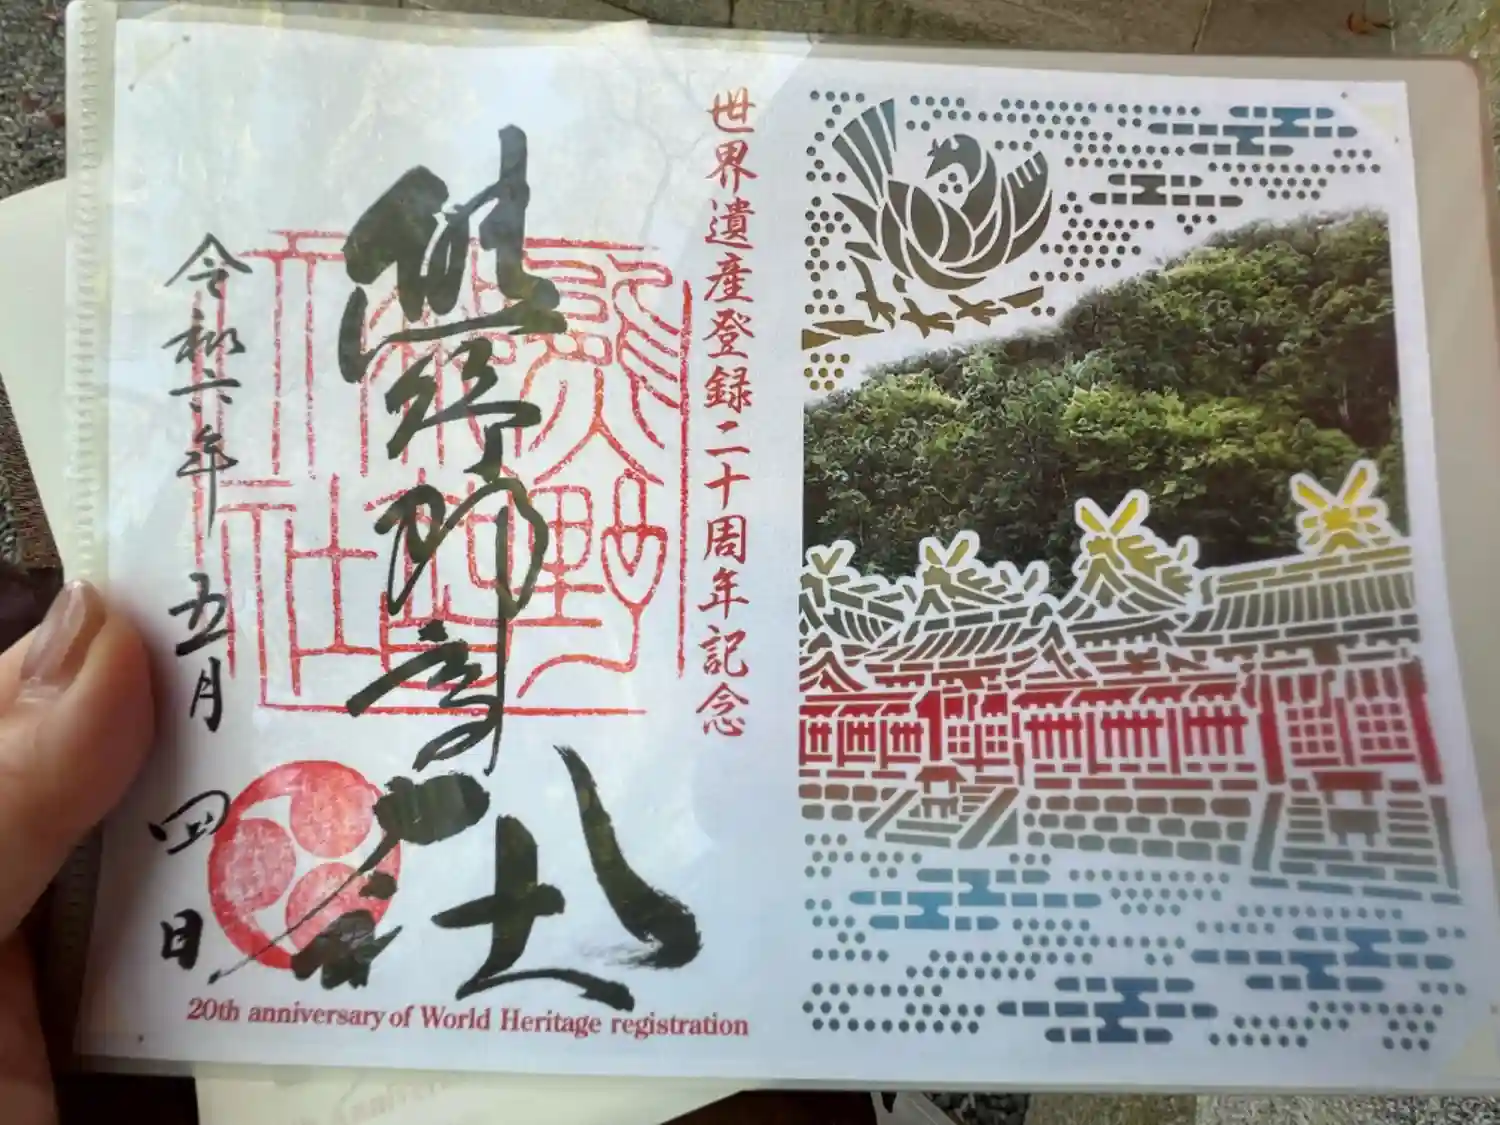 世界遺産登録二十周年記念
熊野那智大社
令和六年五月四日
20th anniversary of World Heritage registration